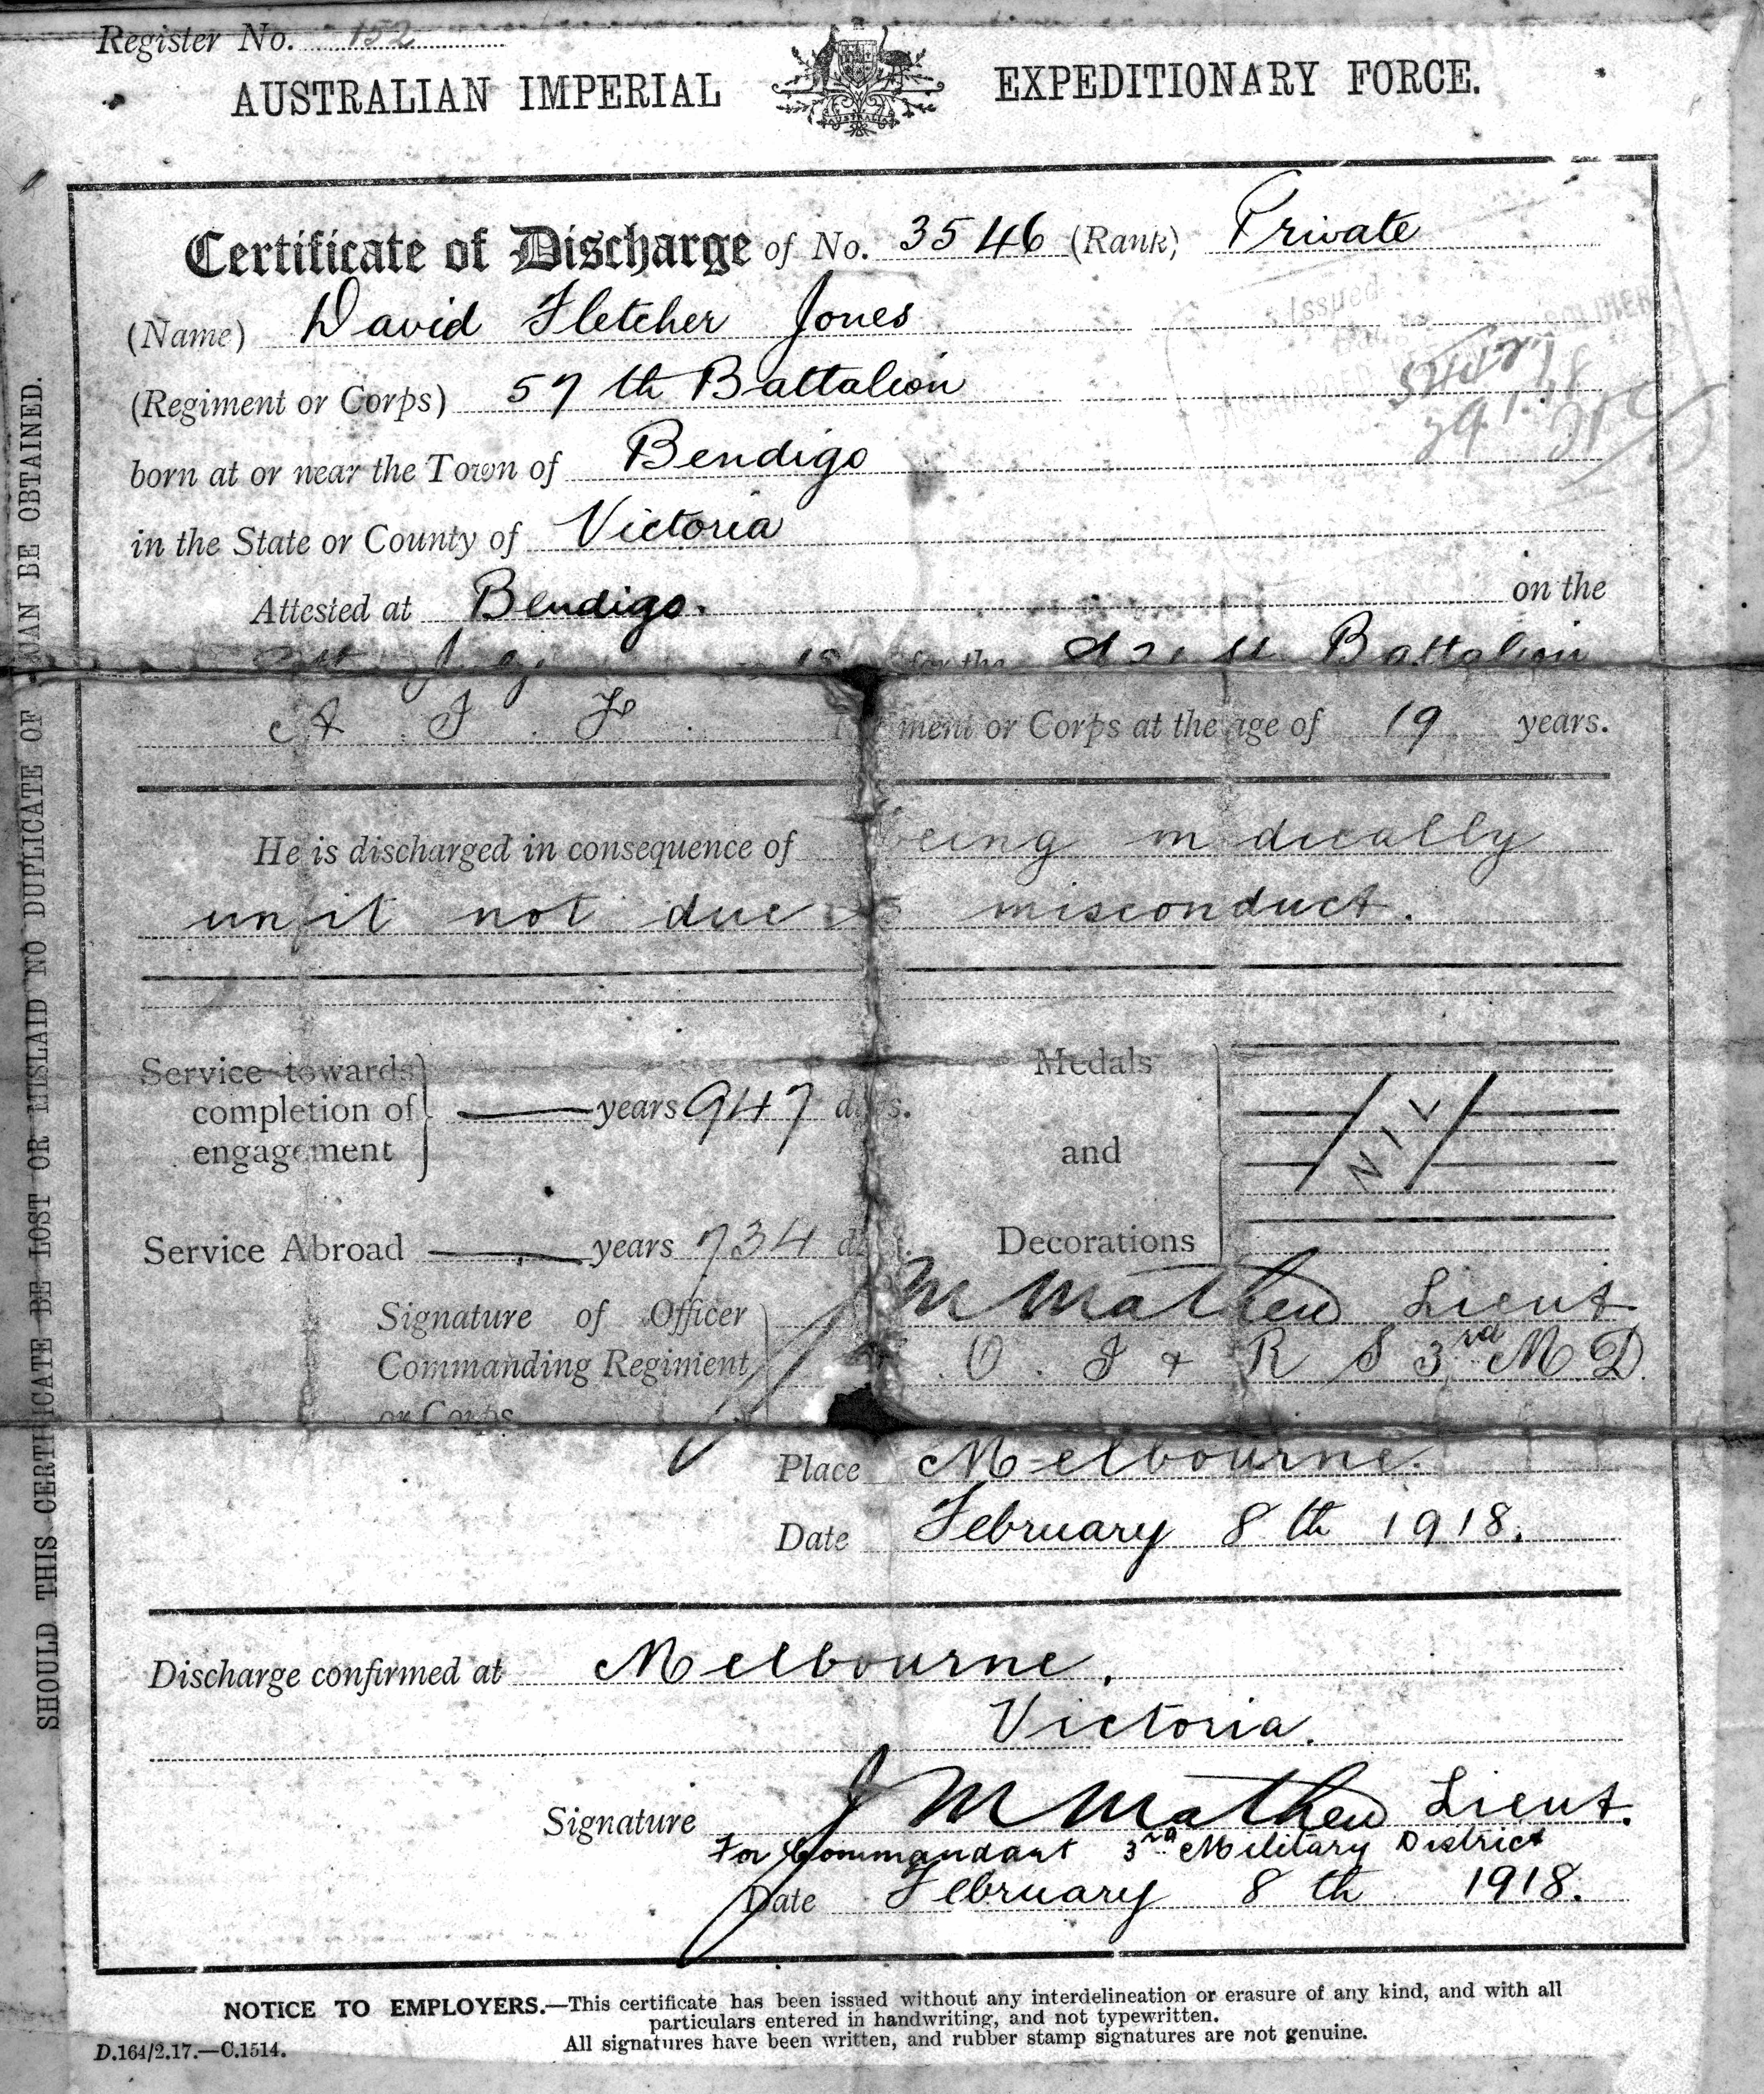 Register No. 152
AUSTRALIAN IMPERIAL EXPEDITIONARY FORCE.
AUSTRALIA
Certificate of Discharge of No. 3546 (Rank) Private
(Name) David Fletcher Jones
Issued
(Regiment or Corps) 57th Battalion
born at or near the Town of Bendigo
in the State or County of Victoria
Attested at Bendigo. on the
July for the 21st Battalion
A. I. F. ment or Corps at the age of 19 years.
He is discharged in consequence of being medically
unfit not due misconduct.
Service towards completion of engagement — years 947 days.
Medals and Decorations NIL
Service Abroad — years 734 d
Signature of Officer Commanding Regiment or Corps
M Mathew Lieut
O. I & R S 3rd M.D.
Place Melbourne.
Date February 8th 1918.
Discharge confirmed at Melbourne.
Victoria.
Signature J M Mathew Lieut.
For Commandant 3rd Military District
Date February 8th 1918.
NOTICE TO EMPLOYERS.—This certificate has been issued without any interdelineation or erasure of any kind, and with all
particulars entered in handwriting, and not typewritten.
All signatures have been written, and rubber stamp signatures are not genuine.
D.164/2.17.—C.1514.
SHOULD THIS CERTIFICATE BE LOST OR MISLAID NO DUPLICATE OF CAN BE OBTAINED.